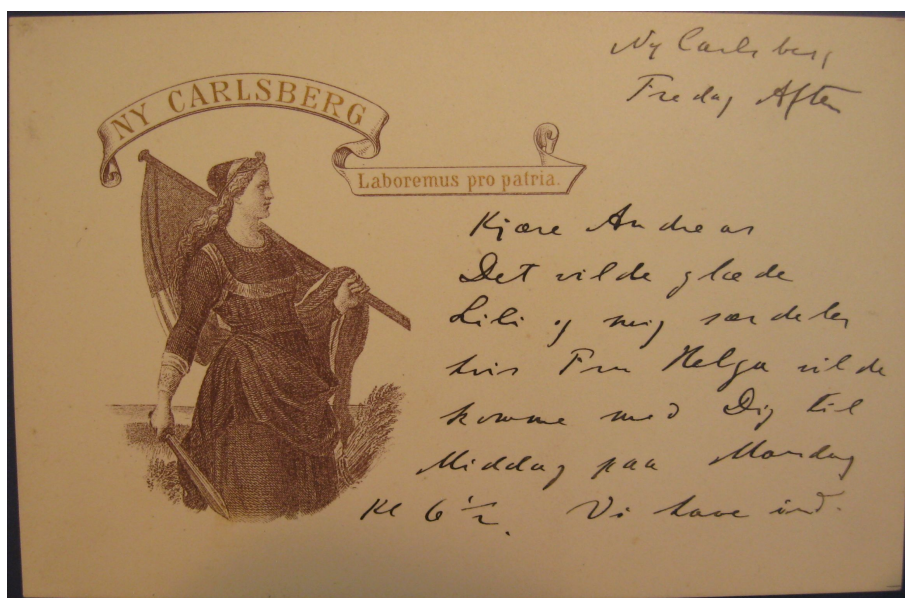 Ny Carlsberg
Fredag Aften
NY CARLSBERG
Laboremus pro patria.
Kjære Andreas
Det vilde glæde
Lili og mig særdeles
hvis Fru Helga vilde
komme med Dig til
Middag paa Mandag
Kl 6 1/2. Vi have